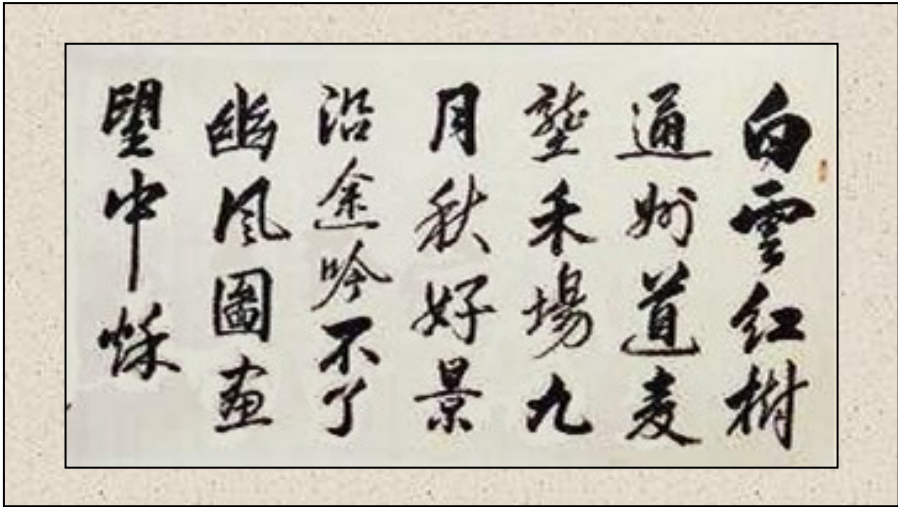 白雲紅樹
通州道麦
壟禾場九
月秋好景
沿途吟不了
豳風圖畫
望中